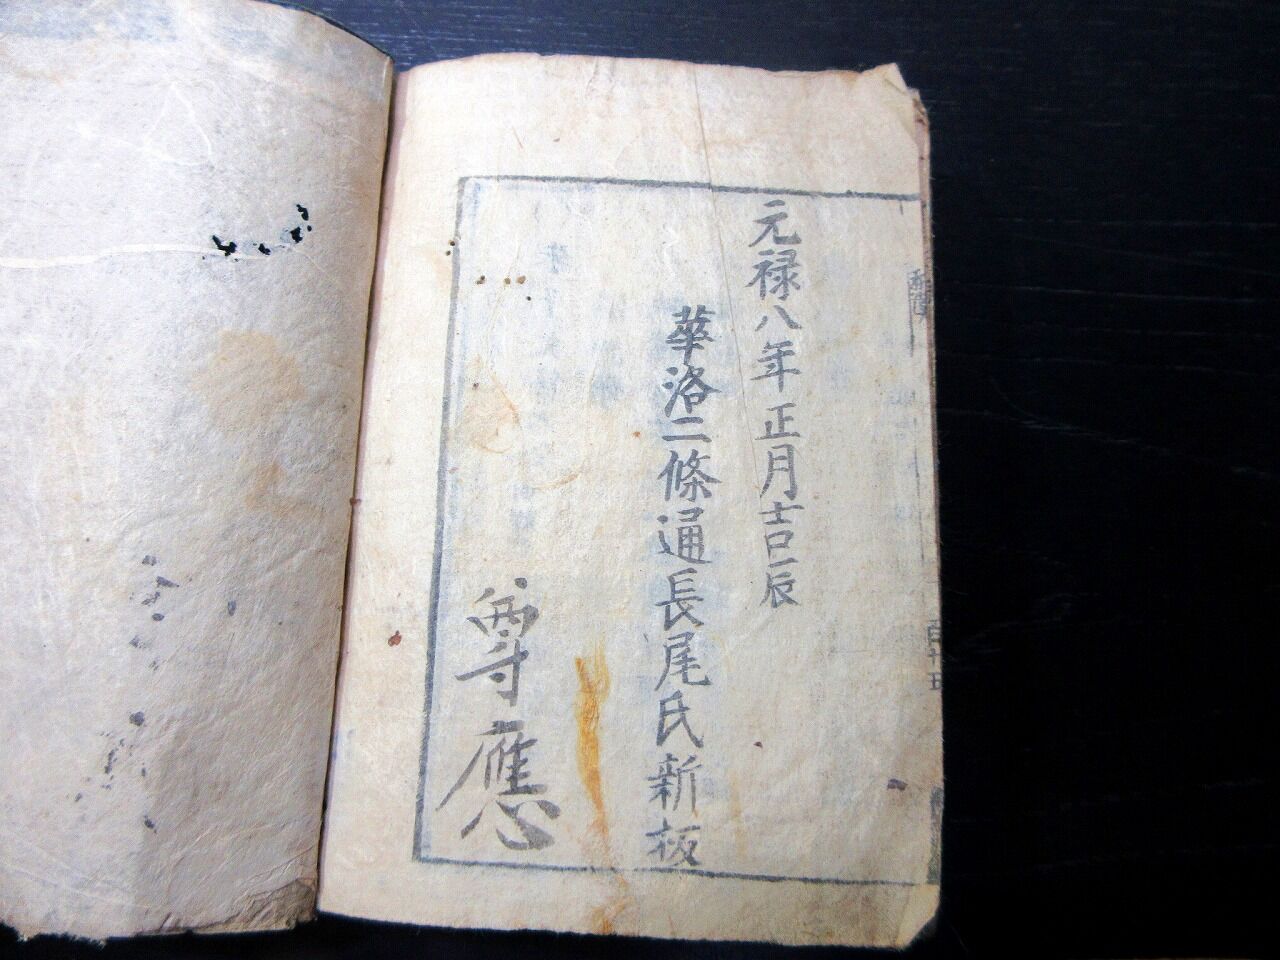 元禄八年正月吉辰
華洛二條通長尾氏新板
尊應
百十五